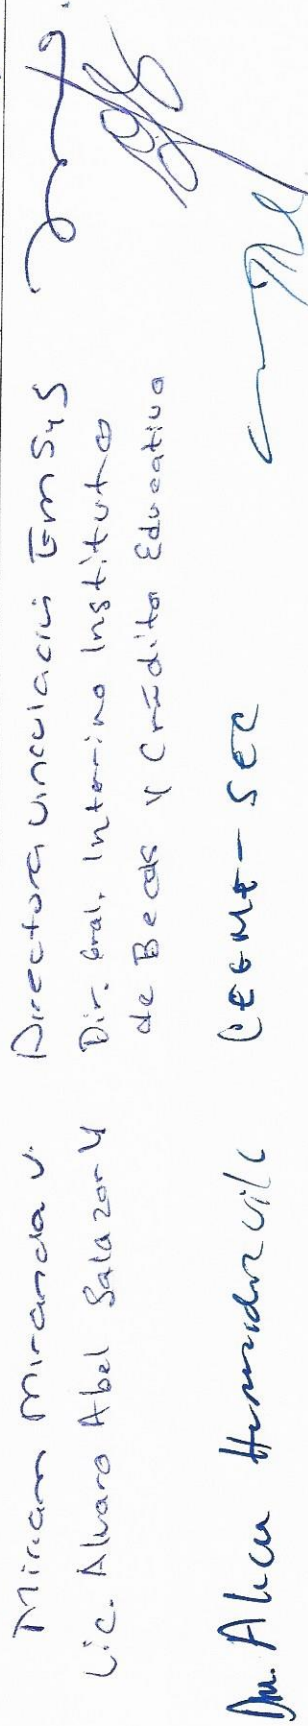 Miriam Miranda V. Directora Vinculación EMSyS
Lic. Alvaro Abel Salazar Y Dir. Gral. Interino Instituto
de Becas y Crédito Educativo
Dra. Alicia Hernández CEEMT-SEC